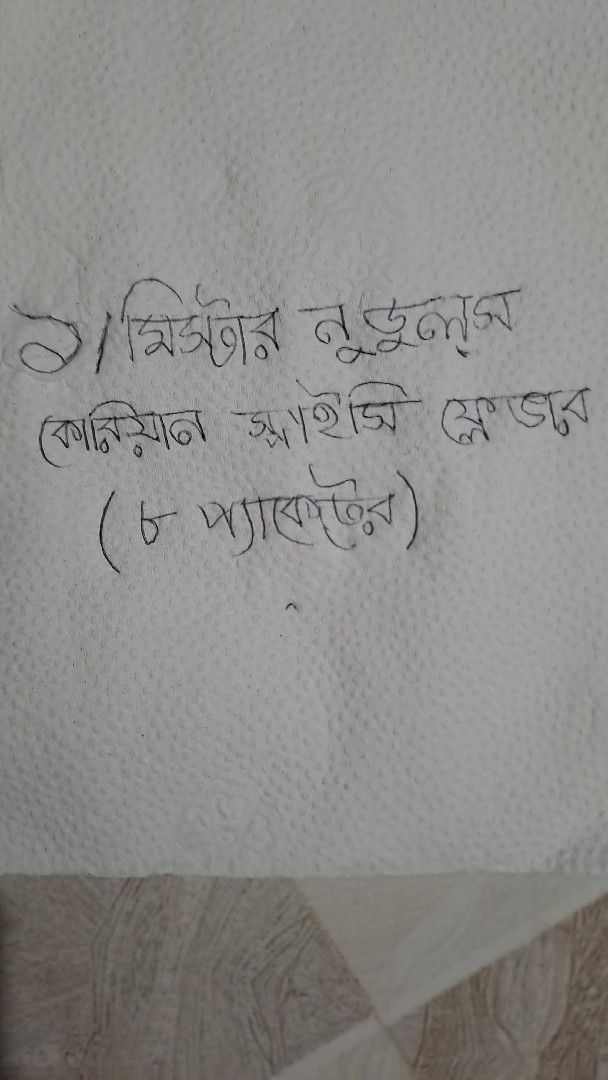 ১/ মিস্টার নুডুল্স
কোরিয়ান স্পাইসি ফ্লেভার
(৮ প্যাকেটের)